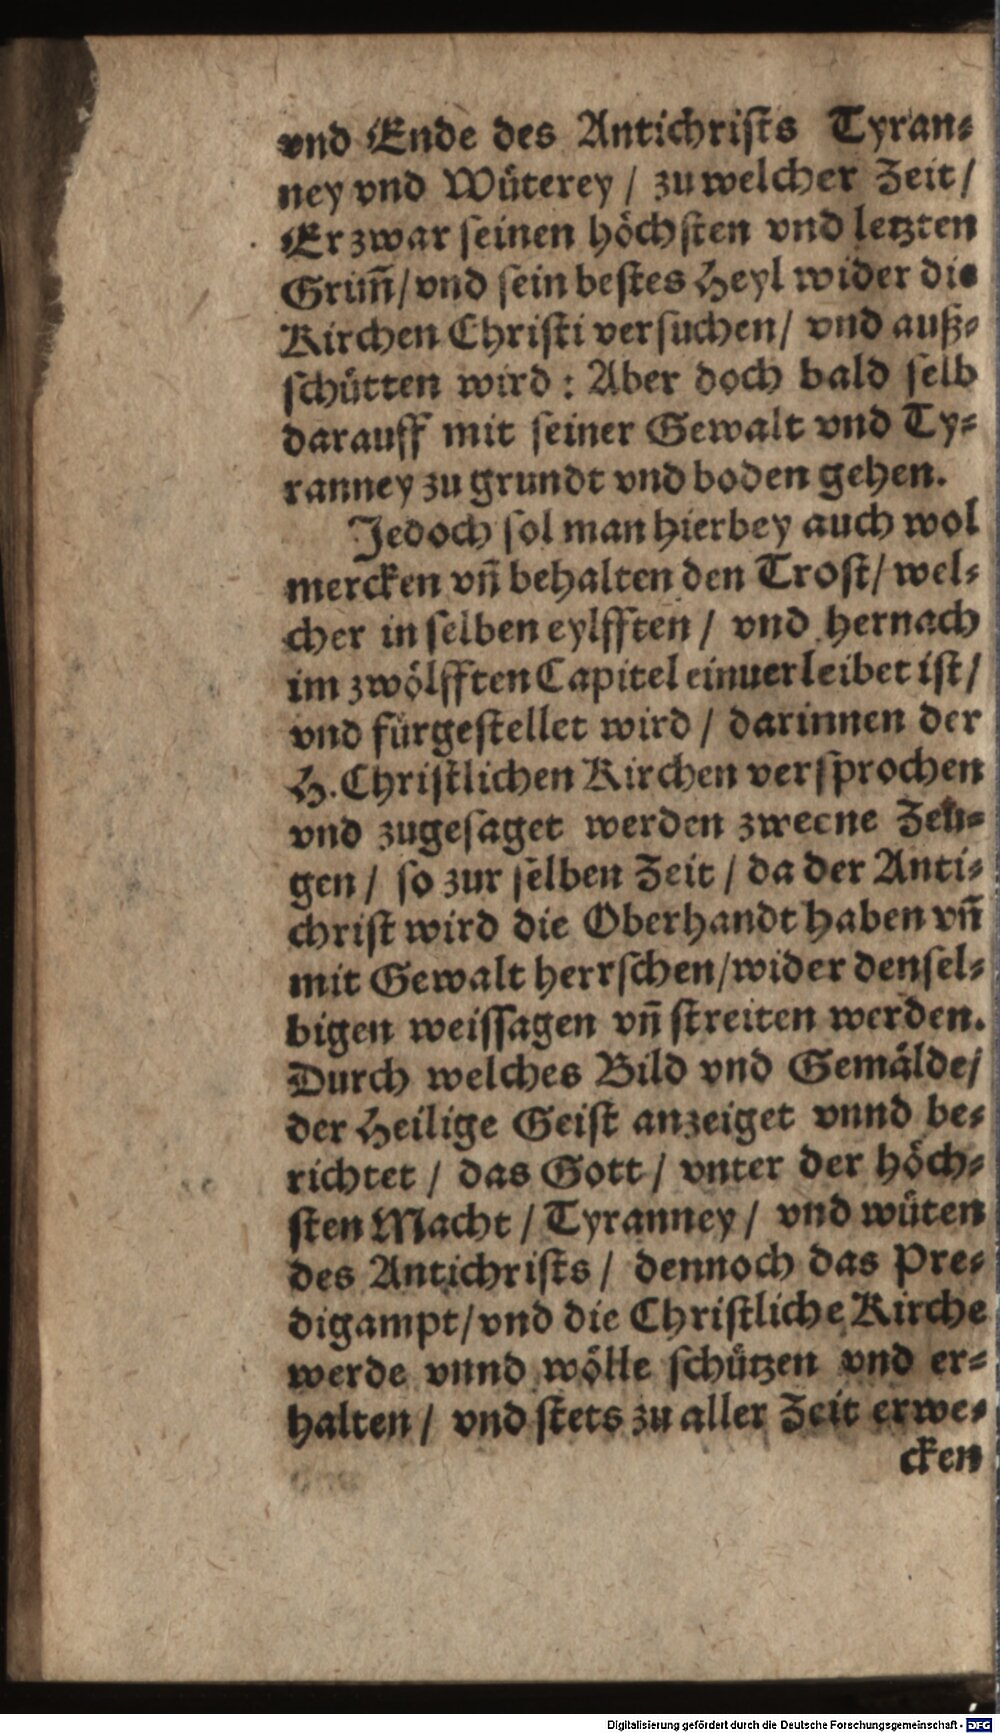 vnd Ende des Antichriſts Tyran⸗
ney vnd Wüterey / zu welcher Zeit /
Er zwar ſeinen höchſten vnd letzten
Grim̃ / vnd ſein beſtes Heyl wider die
Kirchen Chriſti verſuchen / vnd auß⸗
ſchütten wird : Aber doch bald ſelb
darauff mit ſeiner Gewalt vnd Ty⸗
ranney zu grundt vnd boden gehen.
Jedoch ſol man hierbey auch wol
mercken vñ behalten den Troſt / wel⸗
cher in ſelben eylfften / vnd hernach
im zwölfften Capitel einuerleibet iſt /
vnd fürgeſtellet wird / darinnen der
H. Chriſtlichen Kirchen verſprochen
vnd zugeſaget werden zweene Zeu⸗
gen / ſo zur ſelben Zeit / da der Anti⸗
chriſt wird die Oberhandt haben vñ
mit Gewalt herrſchen / wider denſel⸗
bigen weiſſagen vñ ſtreiten werden.
Durch welches Bild vnd Gemälde /
der Heilige Geiſt anzeiget vnnd be⸗
richtet / das Gott / vnter der höch⸗
ſten Macht / Tyranney / vnd wüten
des Antichriſts / dennoch das Pre⸗
digampt / vnd die Chriſtliche Kirche
werde vnnd wölle ſchützen vnd er⸗
halten / vnd ſtets zu aller Zeit erwe⸗
cken
Digitalisierung gefördert durch die Deutsche Forschungsgemeinschaft - DFG